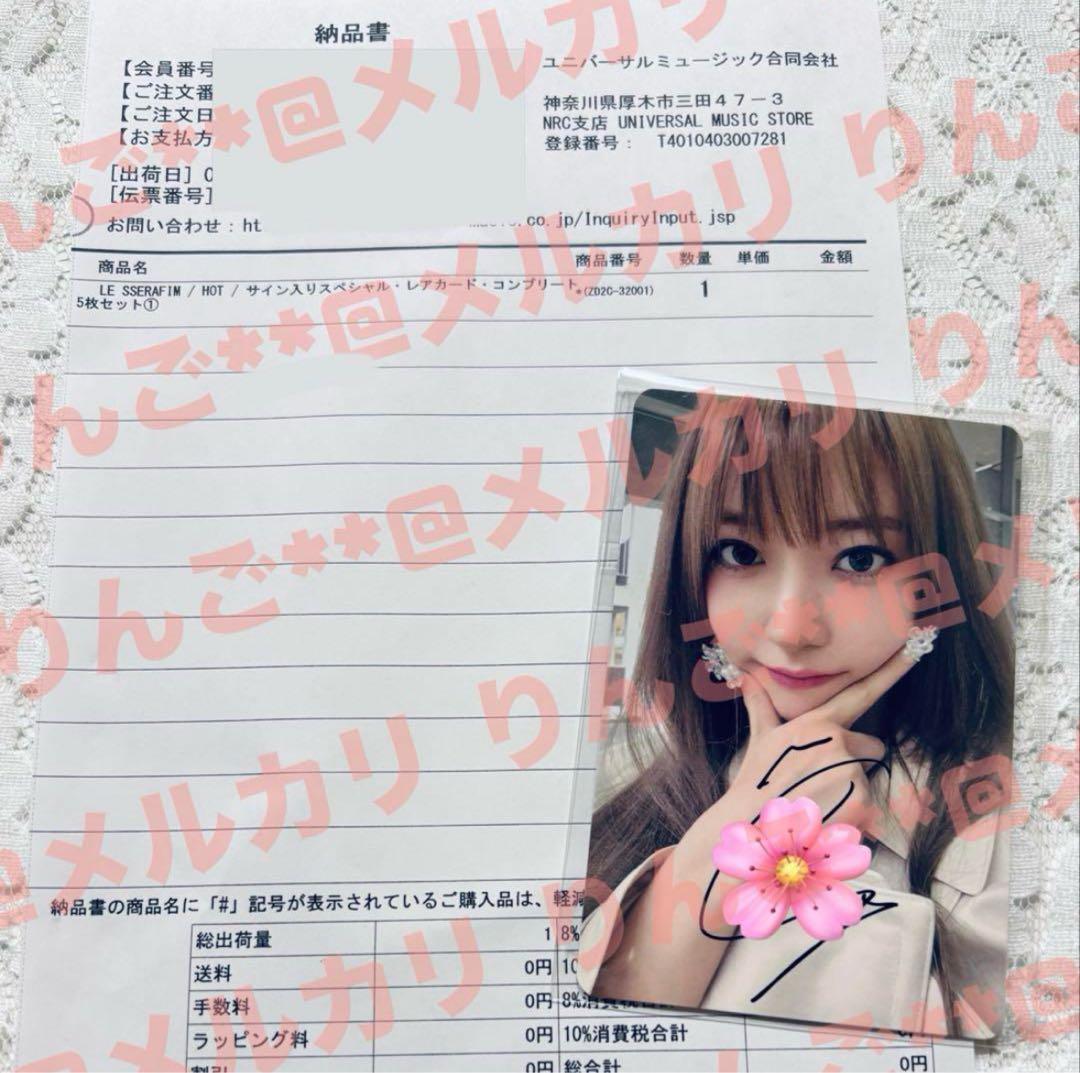 納品書
【会員番号
【ご注文番
【ご注文日
【お支払方
[出荷日] 0
[伝票番号]
お問い合わせ：ht
.co.jp/InquiryInput.jsp
ユニバーサルミュージック合同会社
神奈川県厚木市三田４７－３
NRC支店 UNIVERSAL MUSIC STORE
登録番号： T4010403007281
商品名 商品番号 数量 単価 金額
LE SSERAFIM / HOT / サイン入りスペシャル・レアカード・コンプリート *(ZD2C-32001) 1
5枚セット①
納品書の商品名に「#」記号が表示されているご購入品は、軽減
総出荷量 1 8%
送料 0円 10
手数料 0円 8%消費税合計
ラッピング料 0円 10%消費税合計
割引 0円 総合計 0円
りんご**@メルカリ りんご
りんご**@メルカリ りん
りんご**@メルカリ りんご**@メ
@メルカリ りんご**@メ